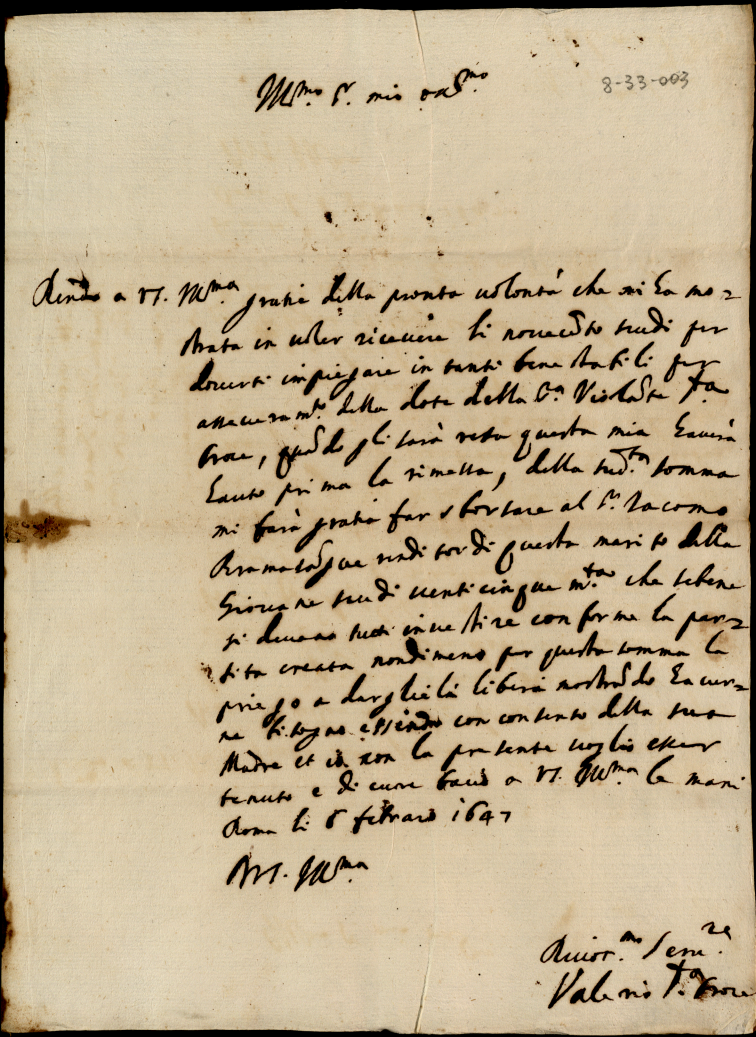 8-33-003
Ill.mo S.r mio oss.mo
Rendo a VS. Ill.ma gratie della pronta uolontà che mi ha mo=
strata in uoler riceuere li nouecẽto scudi per
douersi impiegare in tanti bene stabili per
assecuram.to della dote della S.ra Violãte S.ta
Croce, quãdo gli sarà resa questa mia hauerà
hauto prima la rimessa, della sud.ta somma
mi farà gratia far sborsare al S.r Jacomo
uendi tor di questa marito della
Giouane scudi uenticinque m.ta che sebene
si deuano tutti inuestire conforme la par=
tita creata nondimeno per questa somma la
priego a darglieli liberi mostrãdo hauer=
ne bisogno essendo con consenso della sua
Madre et io con la presente uoglio esser
tenuto e di cuore bacio a VS. Ill.ma le mani
Roma li 8 febraro 1647
DVS. Ill.ma
Seru.re
Valerio S.ta Croce